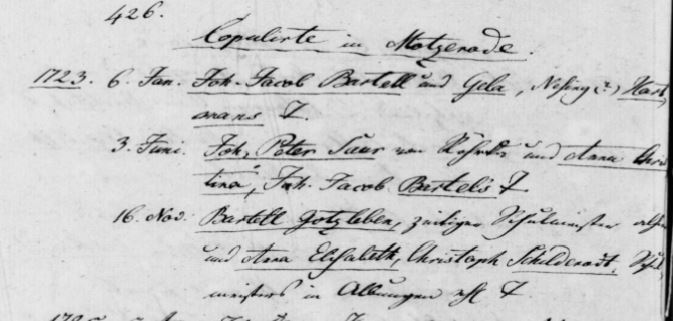 426.
Copulirte in Motzenrode.
1723. 6. Jan. Joh. Jacob Bartell und Gela, Nesing (?) Hart
manns T.
3. Juni. Joh. Peter Saur von und Anna Chris
tina, Joh. Jacob Bartells T
16. Nov: Bartell Gotzleben, zeitiger Schulmeister
und Anna Elisabeth, Christoph Schilderodt, Schul
meisters in Albungen T.